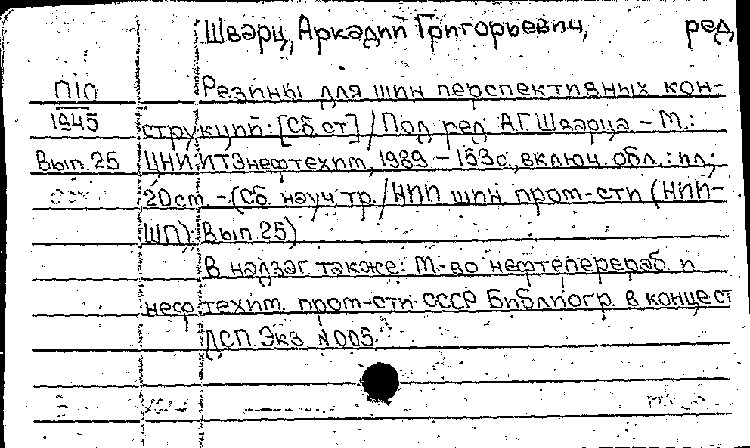 Шварц, Аркадий Григорьевич, ред.
П10 Резины для шин перспективных кон-
1945 струкций: [Сб.ст] / Под ред. А.Г.Шварца. - М.:
Вып.25 ЦНИИТЭнефтехим, 1989. - 153с, включ. обл.: ил;
20см. - (Сб. науч. тр. / НИИ шин. пром-сти (НИИ-
ШП); Вып.25)
В надзаг. также: М-во нефтеперераб. и
нефтехим. пром-сти СССР. Библиогр. в конце ст
ДСП. Экз. N005.